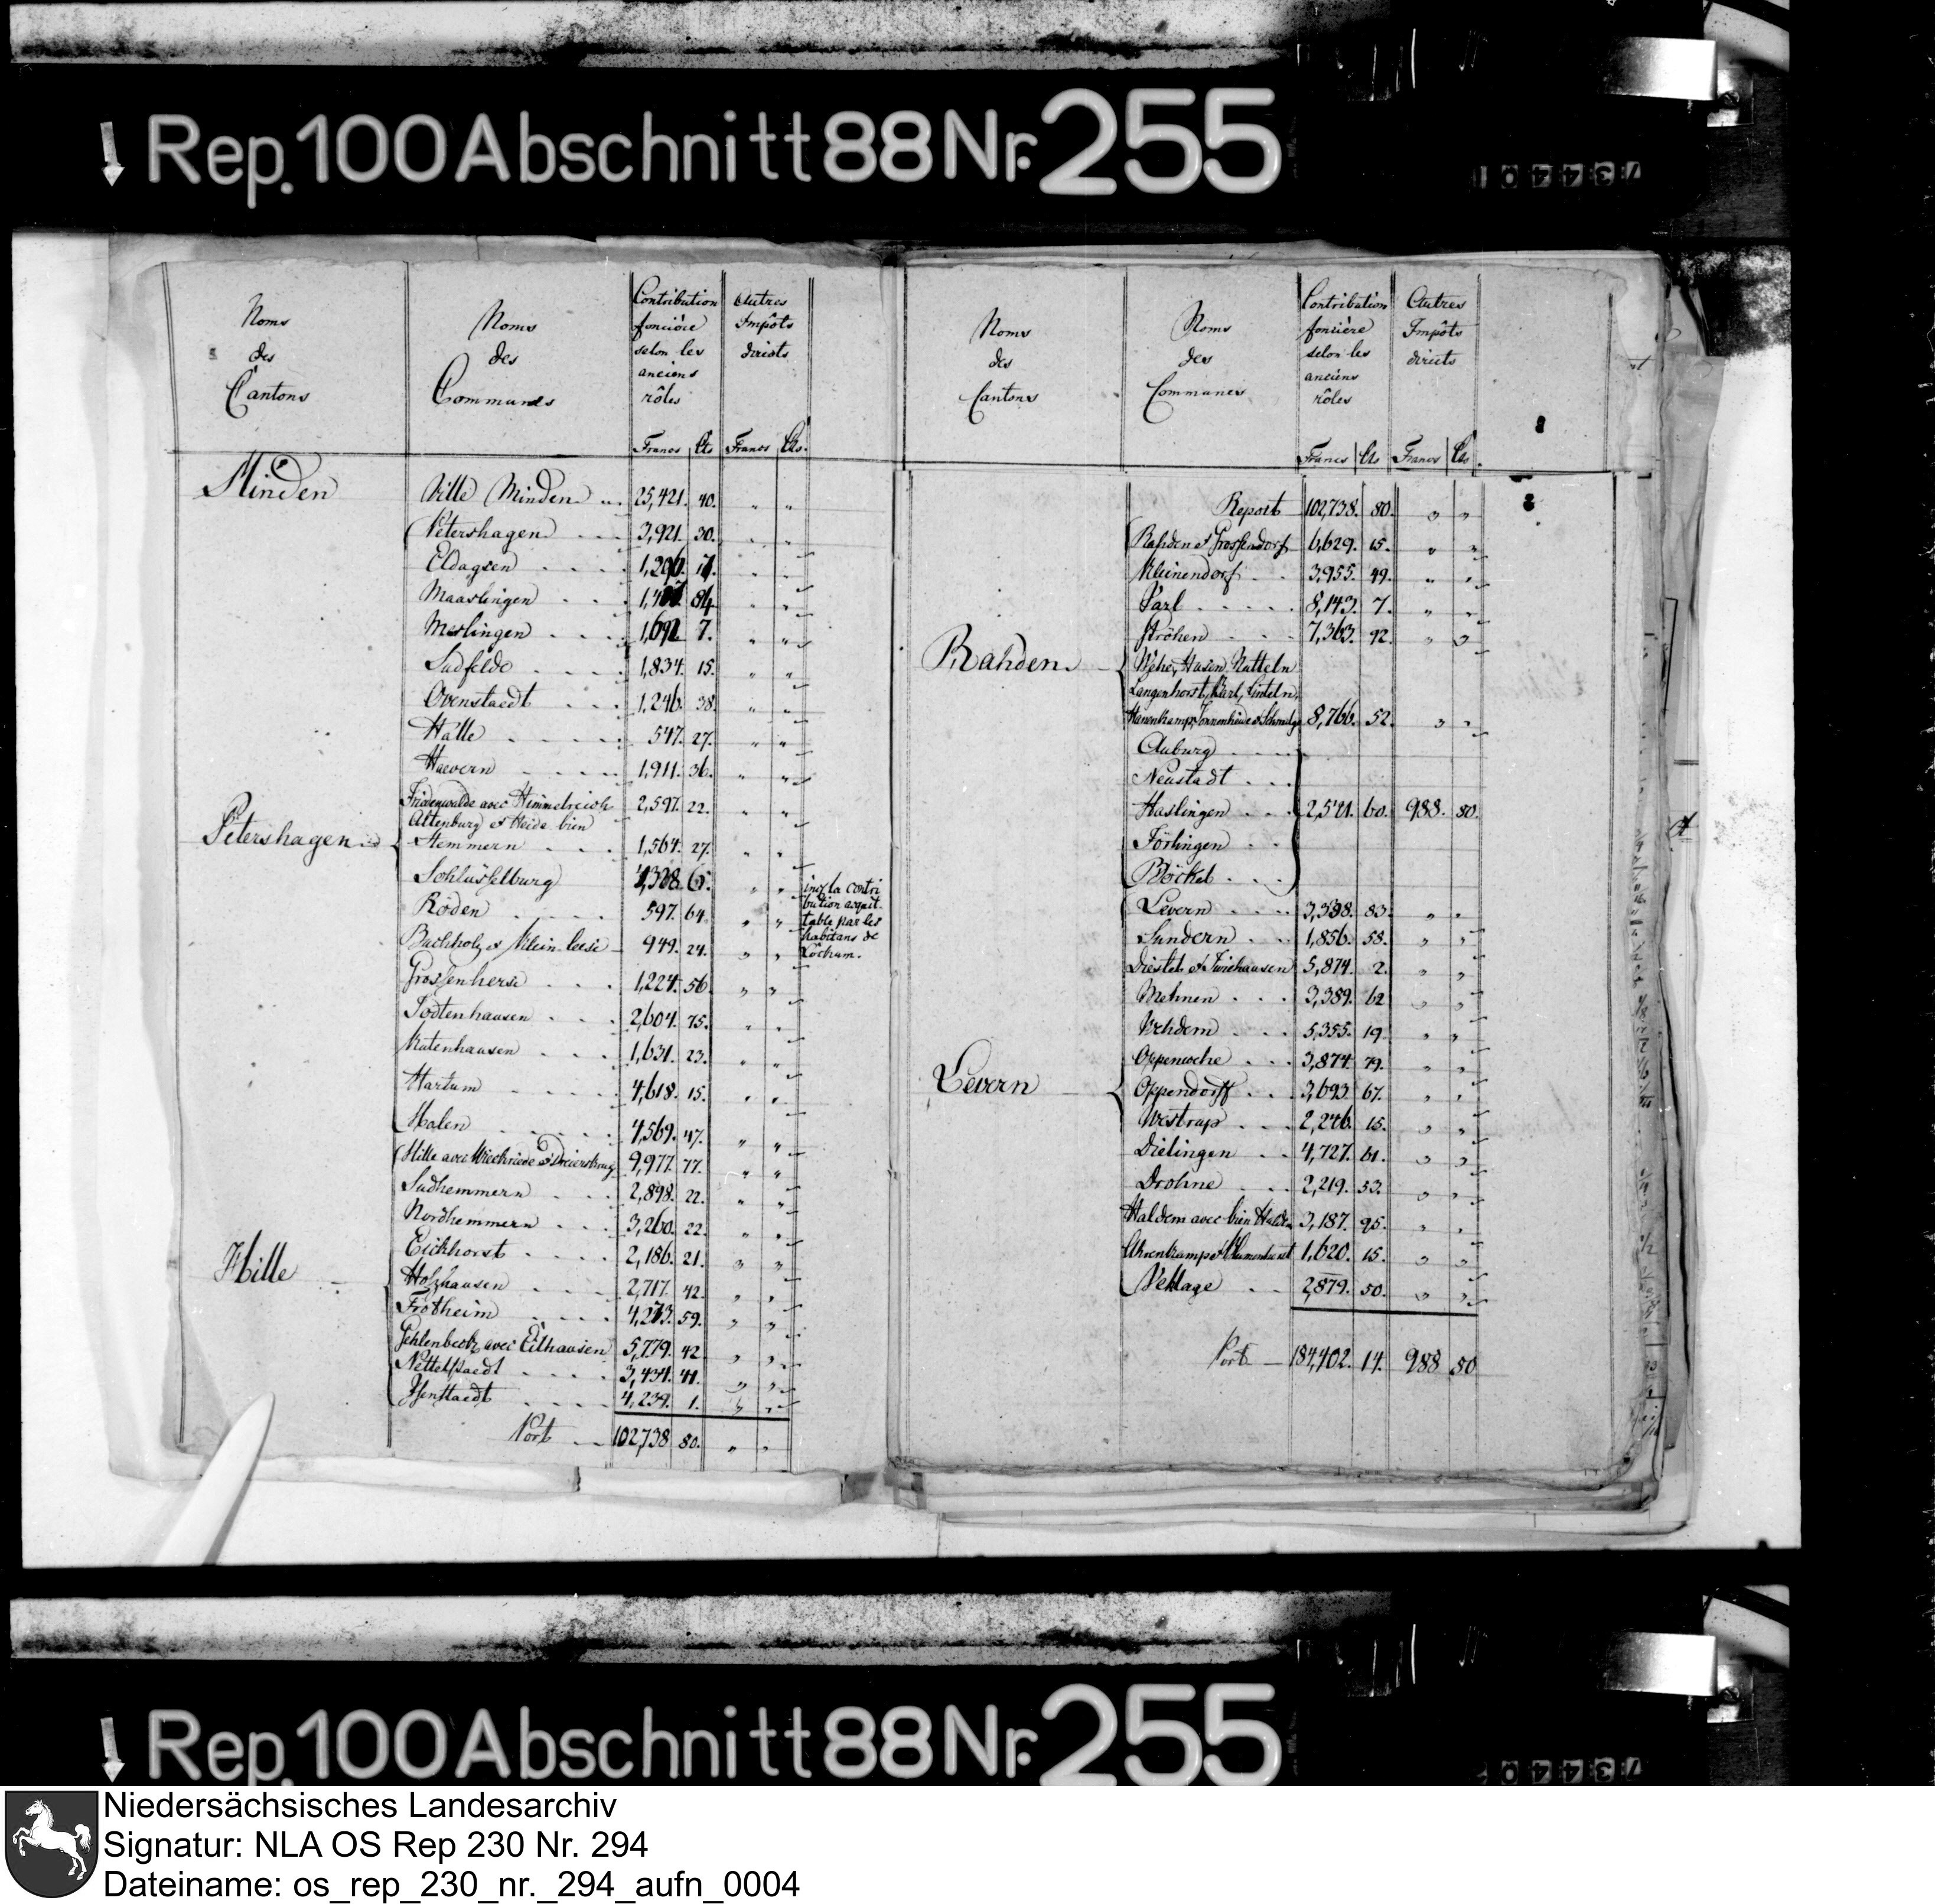 Rep. 100 Abschnitt 88 Nr. 255
Noms des Cantons
Noms des Communes
Contribution foncière selon les anciens rôles
Autres Impôts directs
Francs Cts Francs Cts.
Minden
Ville Minden 25,421. 40. " "
Petershagen
Petershagen 3,921. 30. " "
Eldagsen
Maaslingen 84. " "
Meslingen 1,692. 7. " "
Sudfelde 1,834. 15. " "
Ovenstaedt 1,246. 38. " "
Halle 547. 27. " "
Haevern 1,911. 36. " "
Fridenwalde avec Himmelreich
Altenburg et Heide bien 2,597. 22. " "
Stemmern 1,564. 27. " "
Schlüsselburg " " incl. la contri
bution acquit
table par les
habitans de
Lôchum.
Röden 597. 64. " "
Buchholz et Klein leese 949. 24. " "
Grossenherse 1,224. 56. " "
Todtenhausen 2,604. 75. " "
Kutenhausen 1,631. 23. " "
Hartum 4,618. 15. " "
Holen 4,569. 47. " "
Hille
Hille avec Wieckriede et Dreierstrang 9,977. 77. " "
Sudhemmern 2,898. 22. " "
Nordhemmern 3,260. 22. " "
Eickhorst 2,186. 21. " "
Holzhausen 2,717. 42. " "
Frotheim 4,273. 59. " "
Gehlenbeck avec Eilhausen 5,779. 42 " "
Nettelstaedt 3,434. 41. " "
Isenstaedt 4,239. 1. " "
Port 102,738 80. " "
Noms des Cantons
Noms des Communes
Contribution foncière selon les anciens rôles
Autres Impôts directs
Francs Cts Francs Cts.
Report 102,738. 80. " "
Rahden
Rahden et Grossendorf 6,629. 15. " "
Kleinendorf 3,955. 49. " "
Varl 8,143. 7. " "
Ströhen 7,363. 92. " "
Wehe, Hasen, Nutteln
Langenhorst, Varl, Linteln,
Hanenkamp, Tonnenheide et Schmalge 8,766. 52. " "
Auburg
Neustadt
Haslingen 2,521. 60. 988. 50.
Förlingen
Böckel
Levern
Levern 3,398. 83. " "
Sundern 1,856. 58. " "
Diestel et Twiehausen 5,874. 2. " "
Mehnen 3,389. 62 " "
Wehdem 5,355. 19 " "
Oppenwehe 3,874. 79. " "
Oppendorff 3,693. 67. " "
Westrup 2,246. 15. " "
Dielingen 4,727. 61. " "
Drohne 2,219. 53. " "
Haldem avec bien Haldem 3,187. 95. " "
Ahrenkamp et Blumenhorst 1,620. 15. " "
Vehlage 2,879. 50. " "
Port 184,402. 14. 988 50
Rep. 100 Abschnitt 88 Nr. 255
Niedersächsisches Landesarchiv
Signatur: NLA OS Rep 230 Nr. 294
Dateiname: os_rep_230_nr._294_aufn_0004